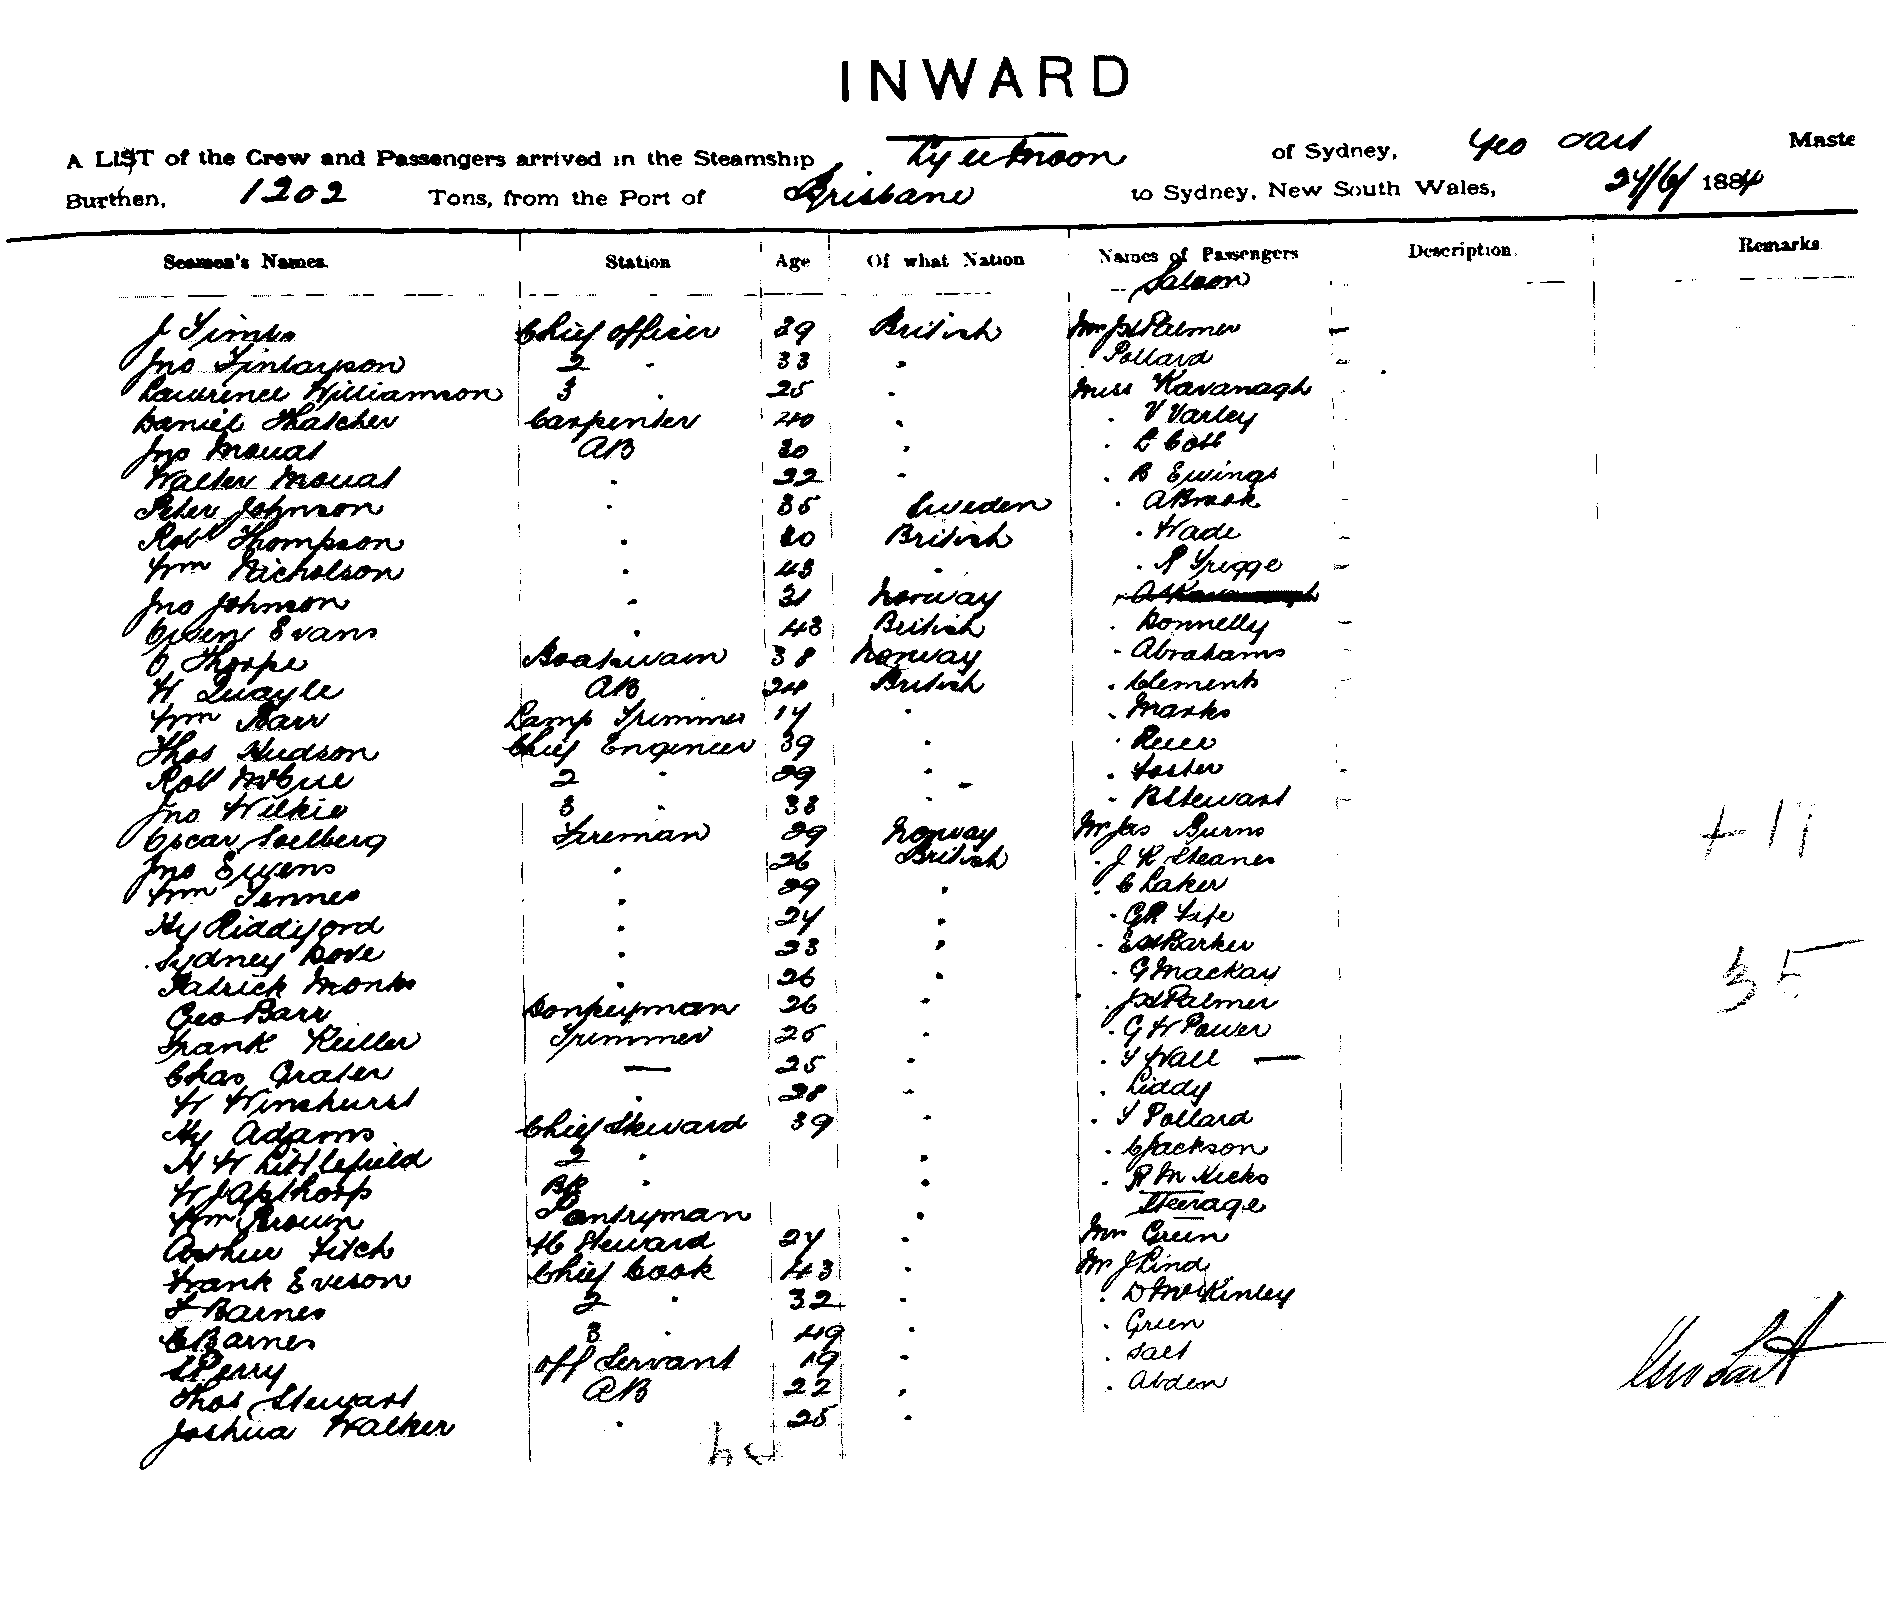 INWARD
A LIST of the Crew and Passengers arrived in the Steamship Ly ee Moon of Sydney, Geo Lart Maste
Burthen, 1202 Tons, from the Port of Brisbane to Sydney, New South Wales, 24/6/ 1884
Seamen's Names. Station Age Of what Nation Names of Passengers Description. Remarks
Saloon
J Chief Officer 39 British Mrs Palmer
Jno Finlayson 2 " 33 " " Pollard
Laurence Williamson 3 " 25 " Miss Kavanagh
Daniel Thatcher Carpenter 40 " " V Varley
Jno Mouat AB 30 " "
Walter Mouat " 22 " " B Ewings
Peter Johnson " 35 Sweden " A Brook
Robt Thompson " 30 British " Wade
Wm Nicholson " 43 " "
Jno Johnson " 31 Norway
Owen Evans " 43 British " Donnelly
O Thorpe Boatswain 38 Norway " Abrahams
W Quayle AB 24 British " Clements
Wm Barr Lamp Trimmer 17 " " Marks
Thos Hudson Chief Engineer 39 "
Robt McCue 2 " 29 " " Foster
Jno Wilkie 3 " 33 " " B Stewart
Oscar Soelberg Fireman 29 Norway Mr Jas Burns + 17
Jno Ewens " 26 British " J R Steanes
Wm " 29 " " C Laker
Hy Riddiford " 24 " " G R Fife
Sydney Dove " 23 " " E H Barker 35
Patrick Monks " 26 " " G Mackay
Geo Barr Donkeyman 26 " " J H Palmer
Frank Trimmer 25 " " G W Power
Chas Grater — 25 " " T Wall —
W Winshurst " 28 " " Liddy
Hy Adams Chief Steward 39 " " T Pollard
H W Littlefield 2 " " " C Jackson
W J Apthorp " " " R M Hicks
Wm Brown Pantryman " Steerage
Arthur Fitch Steward 27 " Mrs Green
Frank Eveson Chief Cook 43 " Mr J Rind
F Barnes 2 " 32 " " D McKinley
C Barnes 3 " 49 " " Green
Perry Off Servant 19 " " Salt
Thos Stewart AB 22 " " Abden
Joshua Walker " 25 "
Geo Lart